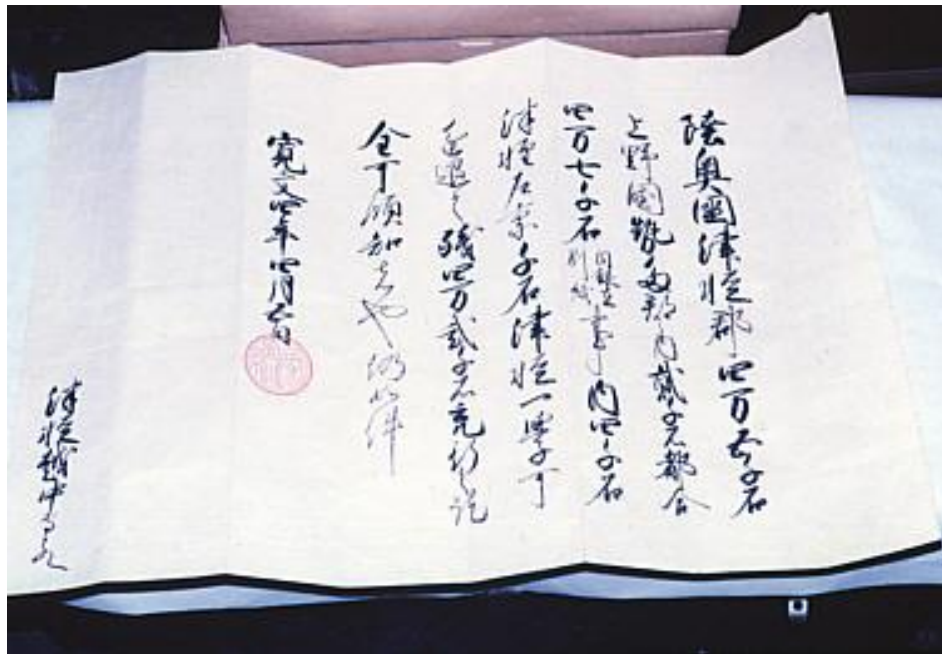 陸奥國津軽郡四万五千石
上野國勢多郡内貳千石都合
四万七千石目録在別紙事内四千石
津軽左京千石津軽一學可
進退之残四万貳千石充行之訖
全可領知者也仍如件
寛文四年四月五日
津軽越中守とのへ